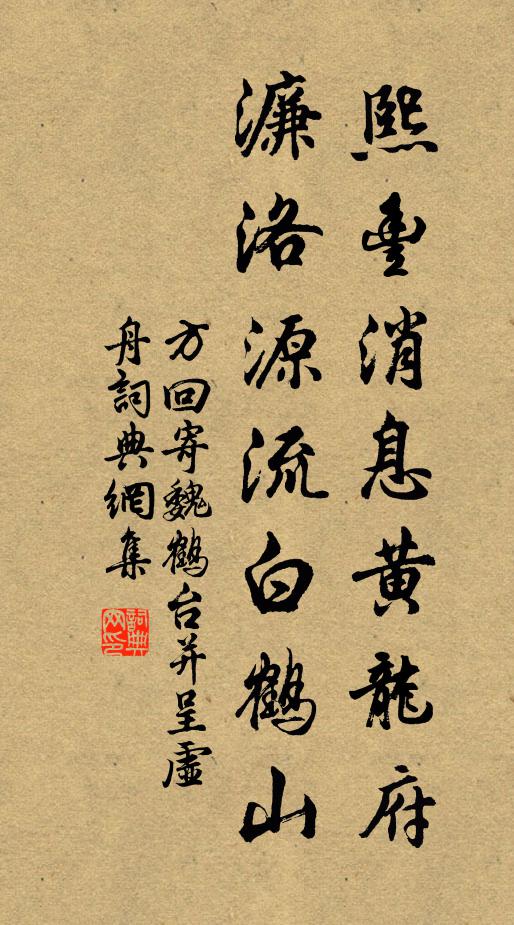 熙豐消息黄龍府
濂洛源流白鶴山
方回寄魏鶴台并呈虛
舟詞典網集
詞典
网印